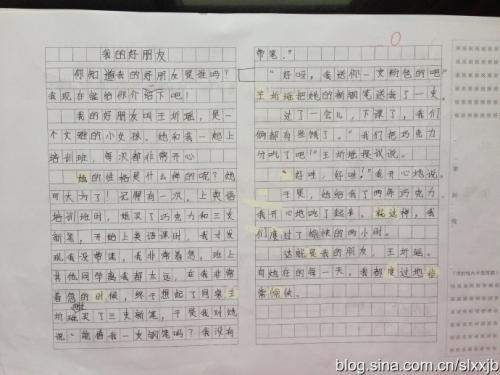 我的好朋友
你知道我的好朋友是谁吗？
我现在就给你介绍下吧！
我的好朋友叫王圻瑶，是一
个文雅的小女孩。她和我一起上
培训班，每次都非常开心
她的性格是什么样的呢？她
可大方了！记得有一次，上英语
培训班时，她买了巧克力和三支
新笔，开始上英语课时，我才发
现我没带笔，我非常着急，班上
其他同学离我都太远，在我非常
着急的时候，终于想起了同桌王
圻瑶买了三支新笔，于是我对她
说“能借我一支钢笔吗？我没有
带笔。”
“好呀，我送你一支粉色的吧”
王圻瑶把她的新钢笔送我了一支。
过了一会儿，下课了，我们
俩都有些饿了。“我们把巧克力
分吃了吧！”王圻瑶提议说。
“好哇，好哇！”我开心地说。
于是，她给我了两年巧克力。
我开心地吃了起来，就这样，我
们度过了愉快的两小时。
这就是我的朋友，王圻瑶。
和她在的每一天，我都度过地非
常愉快。
blog.sina.com.cn/slxxjb